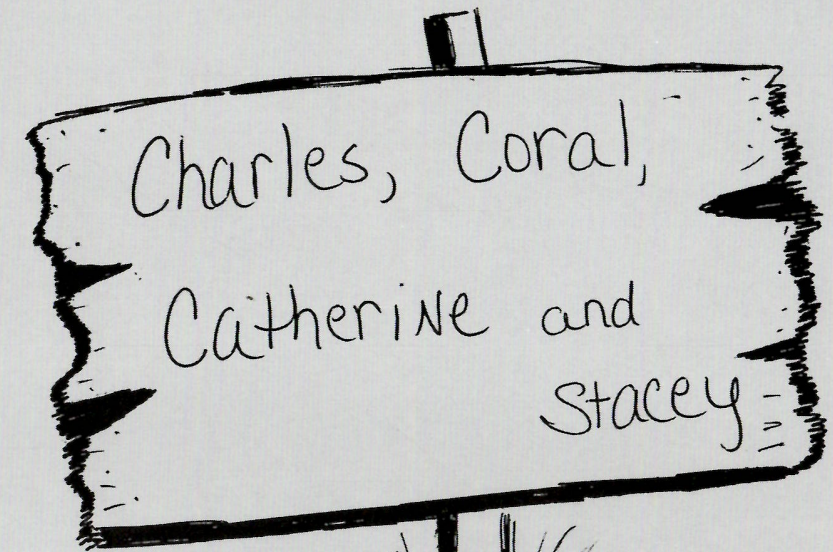 Charles, Coral,
Catherine and
Stacey